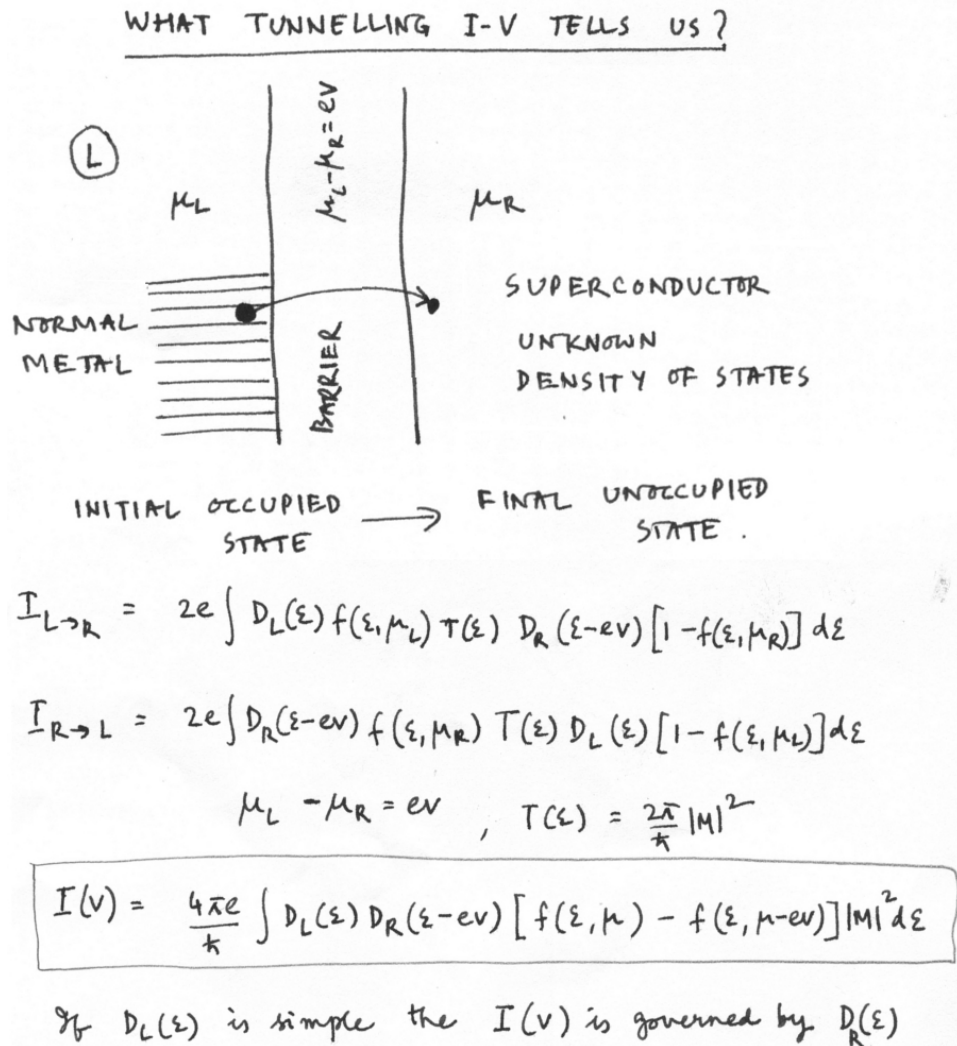 WHAT TUNNELLING I-V TELLS US?
L
μ_L
μ_L-μ_R=eV
μ_R
NORMAL
METAL
BARRIER
SUPERCONDUCTOR
UNKNOWN
DENSITY OF STATES
INITIAL OCCUPIED
STATE
→
FINAL UNOCCUPIED
STATE.
I_{L→R} = 2e ∫ D_L(ε) f(ε,μ_L) T(ε) D_R(ε-eV) [1-f(ε,μ_R)] dε
I_{R→L} = 2e ∫ D_R(ε-eV) f(ε,μ_R) T(ε) D_L(ε) [1-f(ε,μ_L)] dε
μ_L - μ_R = eV , T(ε) = 2π/ℏ |M|²
I(V) = 4πe/ℏ ∫ D_L(ε) D_R(ε-eV) [f(ε,μ) - f(ε,μ-eV)] |M|² dε
If D_L(ε) is simple the I(V) is governed by D_R(ε)